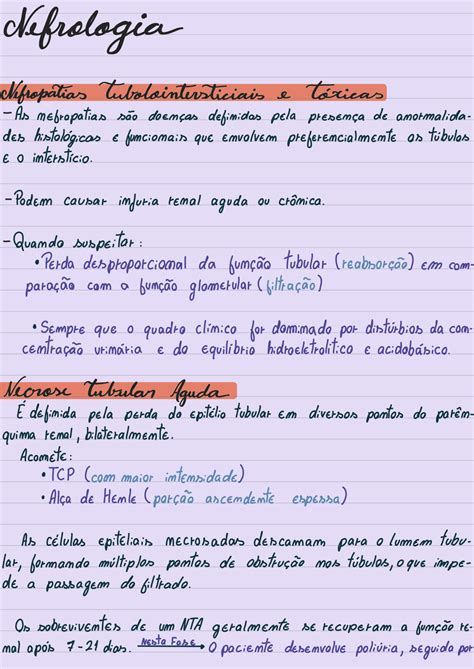 Nefrologia
Nefropatias tubolointersticiais e tóxicas
- As nefropatias são doenças definidas pela presença de anormalida-
des histológicas e funcionais que envolvem preferencialmente os túbulos
e o interstício.
- Podem causar injuria renal aguda ou crônica.
- Quando suspeitar:
• Perda desproporcional da função tubular (reabsorção) em com-
paração com a função glomerular (filtração)
• Sempre que o quadro clínico for dominado por distúrbios da con-
centração urinária e do equilíbrio hidroeletrolítico e acidobásico.
Necrose tubular Aguda
É definida pela perda do epitélio tubular em diversos pontos do parên-
quima renal, bilateralmente.
Acomete:
• TCP (com maior intensidade)
• Alça de Henle (porção ascendente espessa)
As células epiteliais necrosadas descamam para o lumem tubu-
lar, formando múltiplos pontos de obstrução nos túbulos, o que impe-
de a passagem do filtrado.
Os sobreviventes de um NTA geralmente se recuperam a função re-
nal após 7-21 dias. Nesta Fase O paciente desenvolve poliúria, seguida por